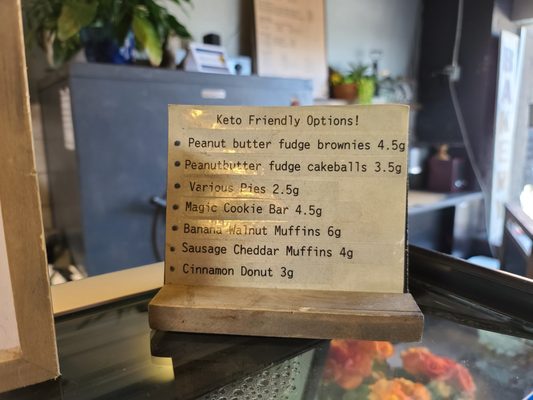 Keto Friendly Options!
• Peanut butter fudge brownies 4.5g
• Peanutbutter fudge cakeballs 3.5g
• Various Pies 2.5g
• Magic Cookie Bar 4.5g
• Banana Walnut Muffins 6g
• Sausage Cheddar Muffins 4g
• Cinnamon Donut 3g